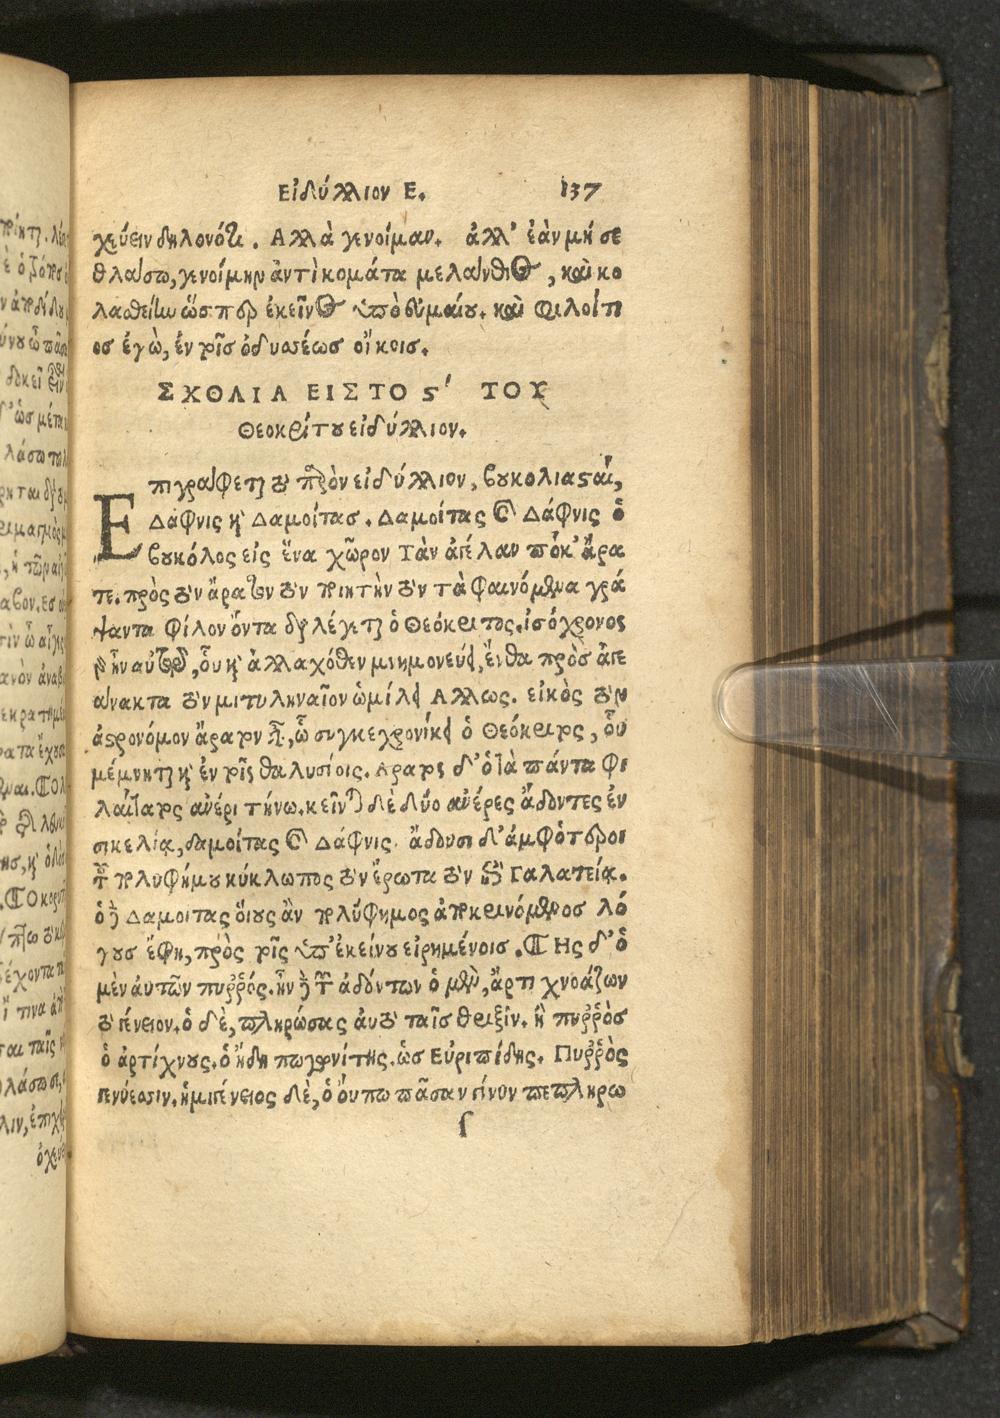 Εἰδύλλιον Ε. 137
χεύειν δηλονότι. Αλλὰ γενοίμαν. ἀλλ' ἐὰν μή σε
θλάσω, γενοίμην ἀντὶ κομάτα μελάνθιος, καὶ κο
λασθείην ὥσπερ ἐκεῖνος ὑπὸ εὐμαίου. καὶ φιλοίτι
ος ἐγὼ, ἐν τοῖς ὀδυασέως οἴκοις.
ΣΧΟΛΙΑ ΕΙΣ ΤΟ ϛ' ΤΟΥ
Θεοκρίτου εἰδύλλιον.
Επιγράφεται τὸ παρὸν εἰδύλλιον, βουκολιασταί,
Δάφνις καὶ Δαμοίτας. Δαμοίτας καὶ Δάφνις ὁ
βουκόλος εἰς ἕνα χῶρον Τὰν ἀγέλαν πόκ' ἄρα
τε. πρὸς τὸν ἄρατον τὸν ποιητὴν τὸν τὰ φαινόμενα γρά
ψαντα φίλον ὄντα διαλέγεται ὁ Θεόκριτος. ἰσόχρονος
γὰρ ἦν αὐτῷ, οὗ καὶ ἀλλαχόθεν μνημονεύει, ἔνθα πρὸς ἀγε
άνακτα τὸν μιτυληναῖον ὡμίλει Αλλως. εἰκὸς τὸν
ἀστρονόμον ἄρατον εἶναι, ᾧ συγκεχρονίκει ὁ Θεόκριτος, οὗ
μέμνηται καὶ ἐν τοῖς θαλυσίοις. Αρατος δ' ὁ τὰ πάντα φι
λαίτατος ἀνέρι τήνω. κεῖνται δὲ δύο ἀνέρες ᾄδοντες ἐν
σικελίᾳ, δαμοίτας καὶ Δάφνις. ᾄδουσι δ' ἀμφότεροι
τοῦ πολυφήμου κύκλωπος τὸν ἔρωτα τὸν ἐπὶ Γαλατείᾳ.
ὁ δὲ Δαμοιτας οἵους ἂν πολύφημος ἀποκρινόμενος λό
γους ἔφη, πρὸς τοῖς ὑπ' ἐκείνου εἰρημένοις. ¶ Ης δ' ὁ
μὲν ἀυτῶν πυῤῥός. ἦν δὲ τῶν ἀδόντων ὁ μὲν, ἄρτι χνοάζων
τὸ γένειον. ὁ δὲ, πληρώσας ἀυτὸ ταῖς θριξίν. ἢ πυῤῥὸς
ὁ ἀρτίχνους. ὁ ἤδη πωγωνίτης. ὡς Εὐριπίδης. Πυῤῥὸς
γενύεασιν. ἡμιγένειος δὲ, ὁ οὔπω πᾶσαν γένυν πεπληρω
ſ